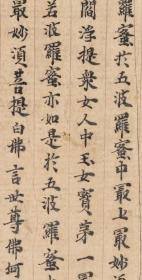 羅蜜於五波羅蜜中㝡上㝡妙
閻浮提衆女人中玉女寶苐一㝡
若波羅蜜亦如是於五波羅蜜
㝡妙湏菩提白佛言世尊佛